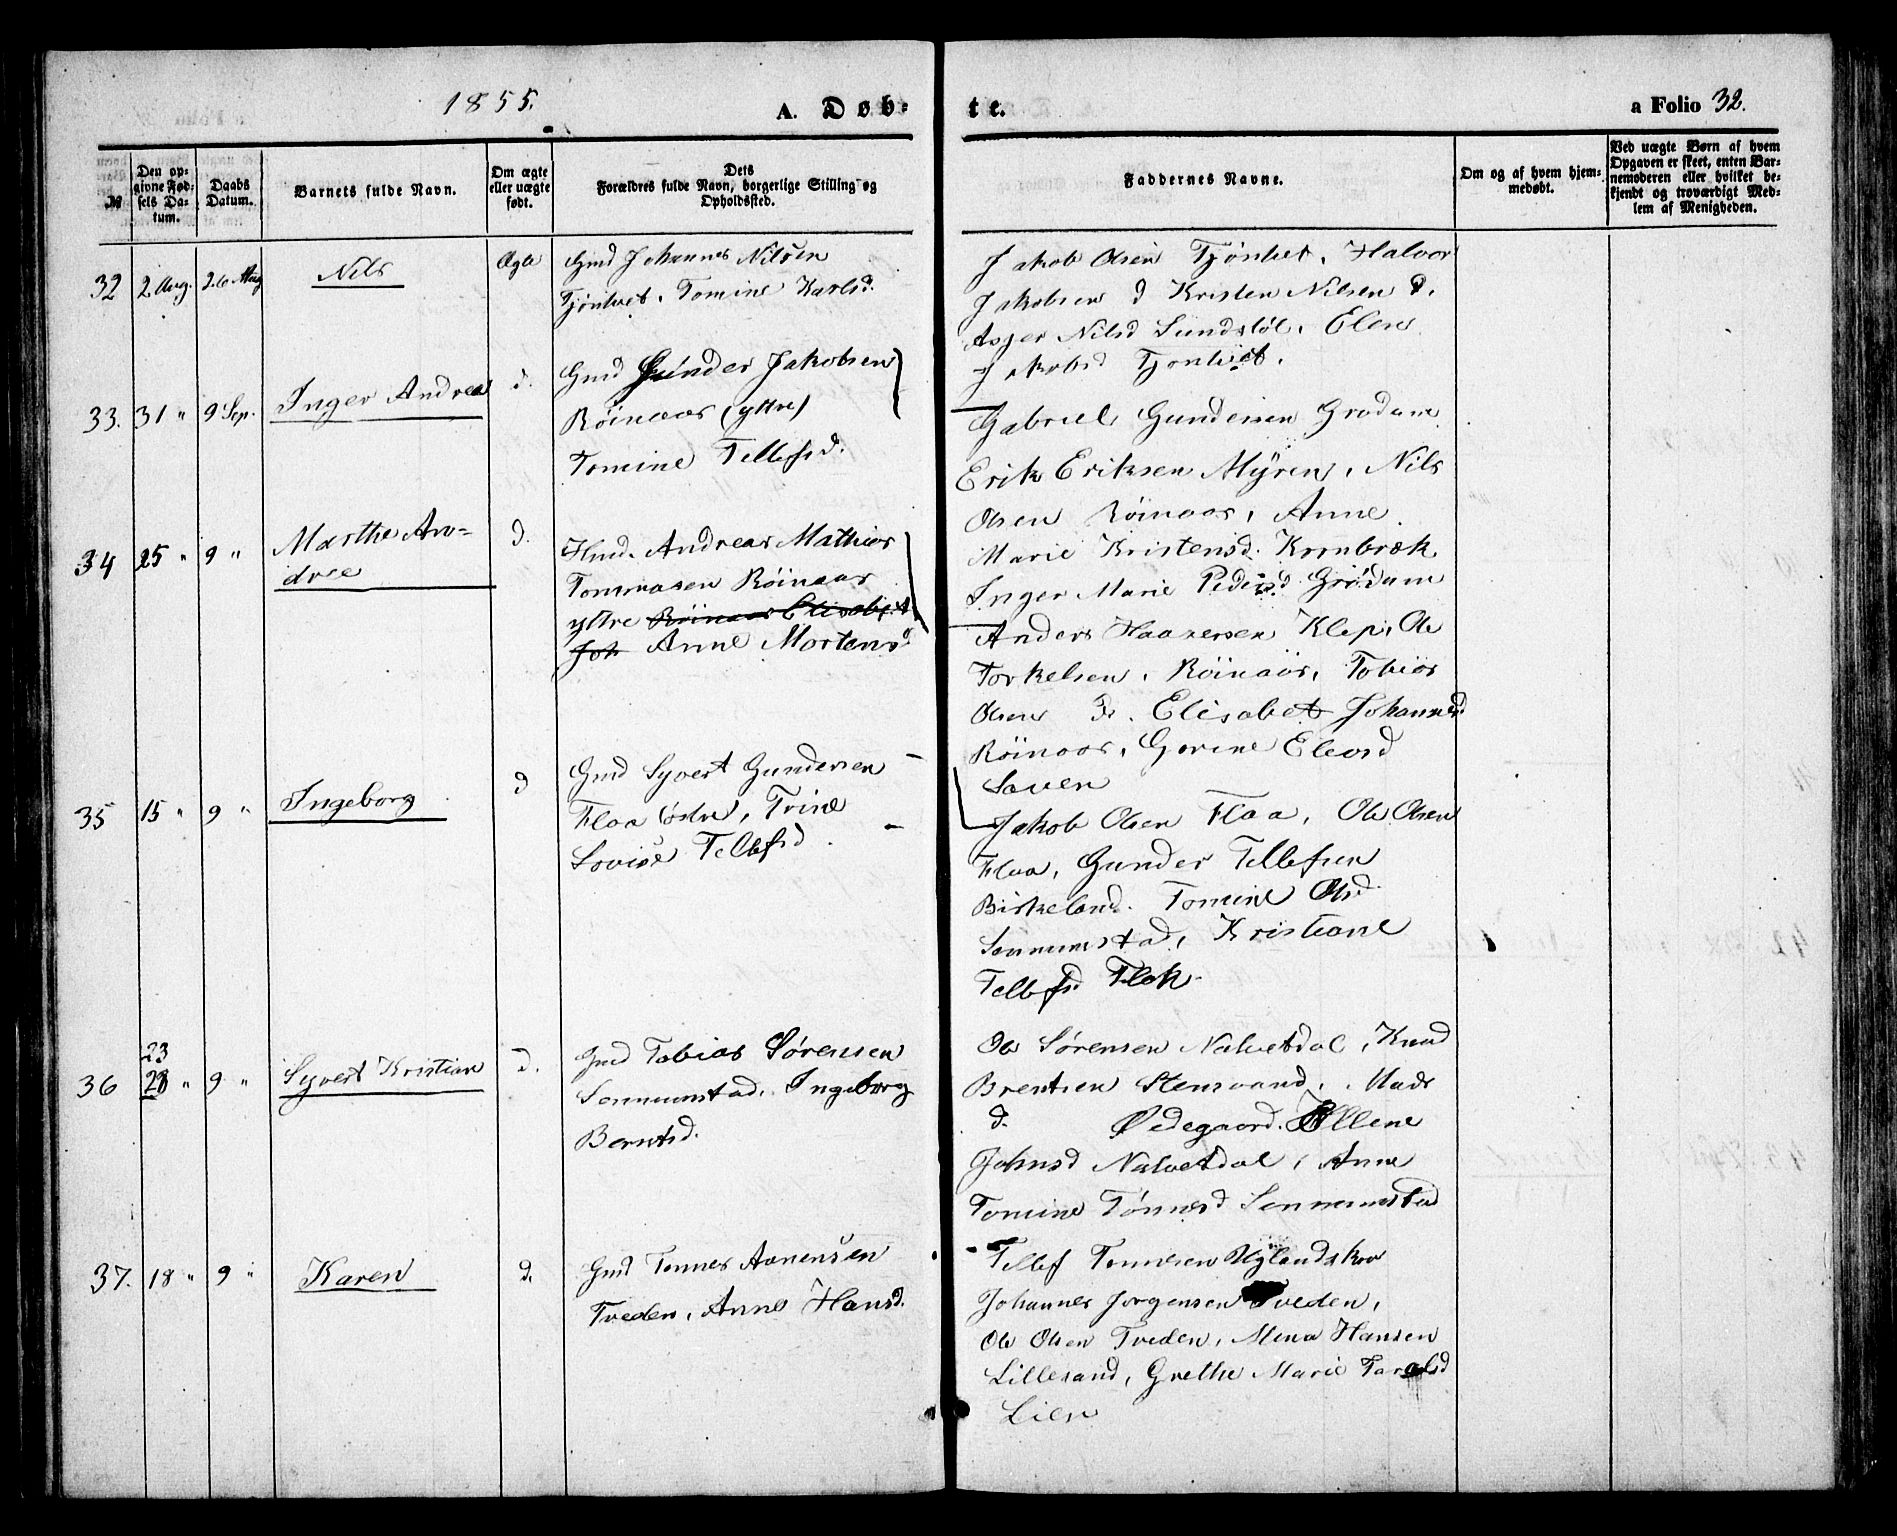 1855.
A. Døb-
te.
a Folio 32.
№
Den op-
givne Fød-
sels Da-
tum.
Daabs
Datum.
Barnets fulde Navn.
Om ægte
eller uægte
født.
Dets
Forældres fulde Navn, borgerlige Stilling og
Opholdssted.
Faddernes Navne.
Om og af hvem hjem-
medøbt.
Ved uægte Børn af hvem
Opgaven er skeet, enten Bar-
nemoderen eller hvilket be-
kjendt og troværdigt Med-
lem af Menigheden.
32 2 Aug. 26 Aug Nils Ægte
Gmd Johannes Nilsen
Tjönhvet. Tomine Karlsd.
Jakob Olsen Tjönhet. Halvor
Jakobsen d Kristen Nilsen d.
Asger Nilsd Sundsløl. Elen
Jakobsd Tjonhvet.
33. 31 " 9 Sep. Inger Andrea d.
Gmd Gunder Jakobsen
Röinaas (yttre)
Tomine Tellefsd.
Gabriel Gundersen Grødum
Erik Eriksen Myren, Nils
Olsen Röinaas, Anne
Marie Kristensd. Kornbræk
Inger Marie Pedersd Grödum
34 25 " 9 " Marthe An-
dree
d.
Hmd. Andreas Mathias
Tommasen Röinaas
yttre Röinaas Elisabet
Joh Anne Mortensd
Anders Haanersen Klep, Ole
Torkelsen, Röinaas, Tobias
Olsen d. Elisabet Johannesd
Röinaas, Gorine Eleusd
Saven
35 15 " 9 " Ingeborg d
Gmd Syvert Gundersen
Flaa östre, Trine
Lovise Tellefsd.
Jakob Olsen Flaa, Ole Olsen
Flaa, Gunder Tellefsen
Birkeland. Tomine Olsd.
Sennumstad, Kristiane
Tellefsd Flak.
36 23
28 " 9 " Syvert Kristian d.
Gmd Tobias Sørensen
Sennumstad. Ingeborg
Berntsd.
Ole Sørensen Nalvetdal, Knud
Brentsen Stensvand, Mads
d. Ødegaard. Ellene
Johnsd Nalvetdal, Anne
Tomine Tönnesd Sennumstad
37. 18 " 9 " Karen d.
Gmd Tonnes Aanensen
Tveden, Anne Hansd.
Tellef Tonnesen Uglandskov
Johannes Jorgensen Tveden,
Ole Olsen Tveden, Mena Hansen
Lillesand, Grethe Marie Taralsd
Lien